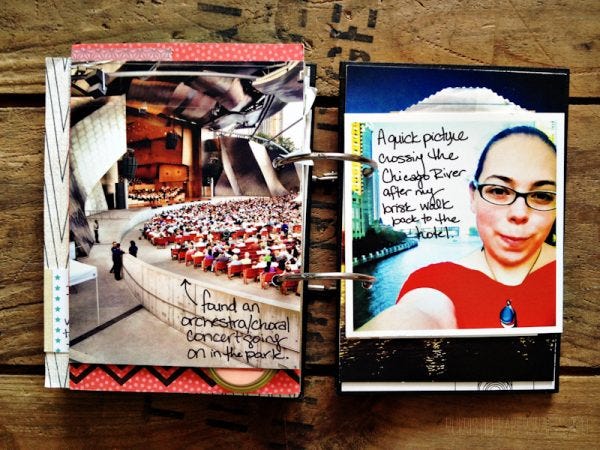 found an
orchestra/choral
concert going
on in the park.
A quick picture
crossing the
Chicago River
after my
brisk walk
back to the
hotel.